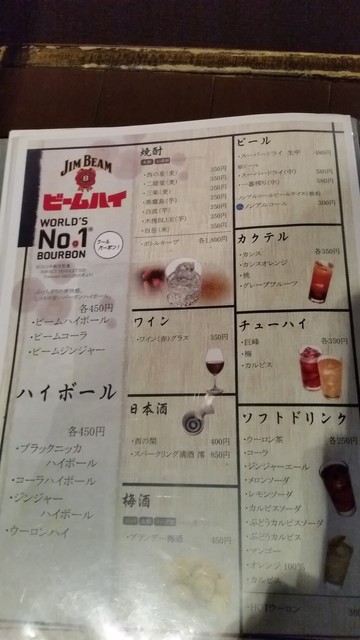 JIM BEAM
B
ビームハイ
WORLD'S
No.1
BOURBON
各450円
・ビームハイボール
・ビームコーラ
・ビームジンジャー
ハイボール
各450円
・ブラックニッカ
ハイボール
・コーラハイボール
・ジンジャー
ハイボール
・ウーロンハイ
焼酎
350円
350円
350円
350円
350円
350円
350円
・ボトルキープ 各1,800円
ワイン
・ワイン(赤)グラス 350円
日本酒
400円
・スパークリング清酒 澪 850円
梅酒
・ブランデー梅酒 450円
ビール
・スーパードライ 生中
・スーパードライ(中)
・一番搾り(中)
ノンアルコール 300円
カクテル
各350円
・カシス
・カシスオレンジ
・桃
・グレープフルーツ
チューハイ
各350円
・巨峰
・梅
・カルピス
ソフトドリンク
各250円
・ウーロン茶
・コーラ
・ジンジャーエール
・メロンソーダ
・レモンソーダ
・カルピスソーダ
・ぶどうカルピスソーダ
・ぶどうカルピス
・マンゴー
・オレンジ 100%
・カルピス
・HOTウーロン